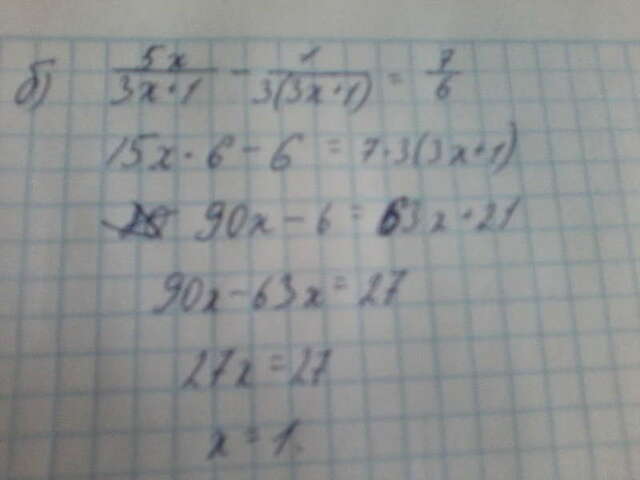 б) 5x/(3x+1) - 1/(3(3x+1)) = 7/6
15x·6-6 = 7·3(3x+1)
90x-6 = 63x+21
90x-63x=27
27x=27
x=1.